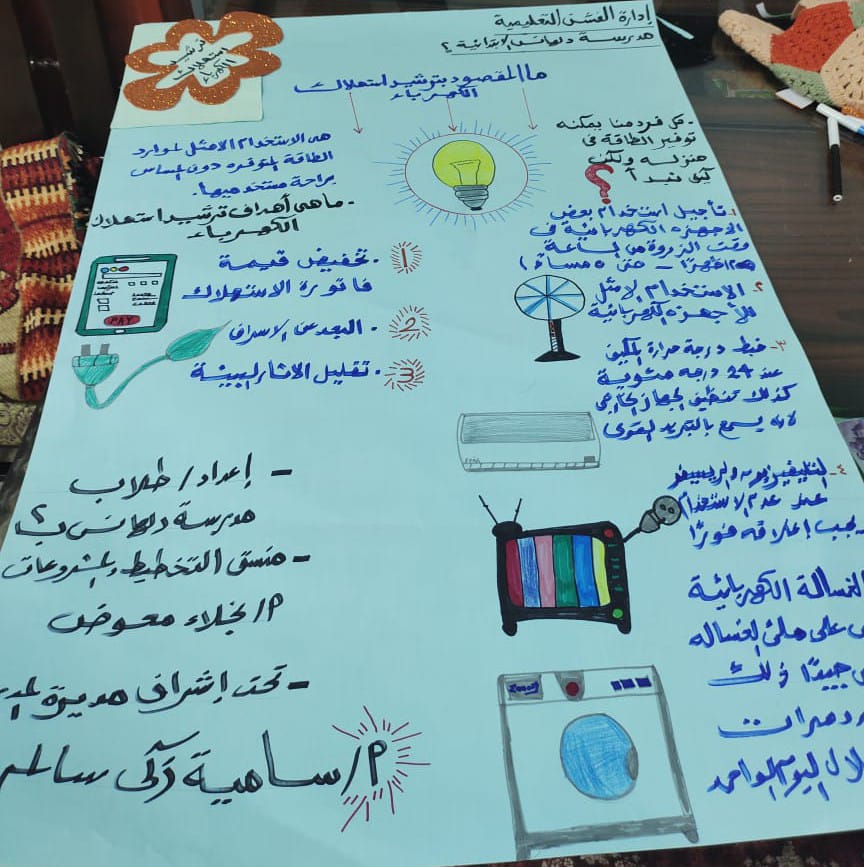 إدارة الفشن التعليمية
مدرسة دلهانس الابتدائية ؟
ترشيد
استهلاك
الكهرباء
ما المقصود بترشيد استهلاك
الكهرباء
هى الاستخدام الامثل لموارد
الطاقة المتوفره دون المساس
براحة مستخدميها.
- ماهى أهداف ترشيد استهلاك
الكهرباء
1 . تخفيض قيمة
فاتورة الاستهلاك
2 . البعد عن الاسراف
3 . تقليل الاثار البيئية
PAY
- كل فرد منا يمكنه
توفير الطاقة فى
منزله ولكن
كيف نبدأ ؟
١. تأجيل استخدام بعض
الاجهزه الكهربائية فى
وقت الذروة من الساعة
ظهرًا - حتى ٥ مساءً)
٢. الاستخدام الامثل
للأجهزه الكهربائية
٣- ضبط درجة حرارة المكيف
عند 24 درجه مئوية
كذلك تنظيف الجهاز الخارجى
لانه يسمح بالتبريد القوى
٤- التليفزيون والريسيفر
عند عدم الاستخدام
يجب إغلاقه فورًا
الغسالة الكهربائية
على ملئ الغساله
جيدًا ذلك
مرات
اليوم الواحد
- إعداد / طلاب
مدرسة دلهانس ب ؟
- منسق التخطيط والمشروعات
م/ نجلاء معوض
- تحت إشراف مديرة
م/ سامية زكى سالم